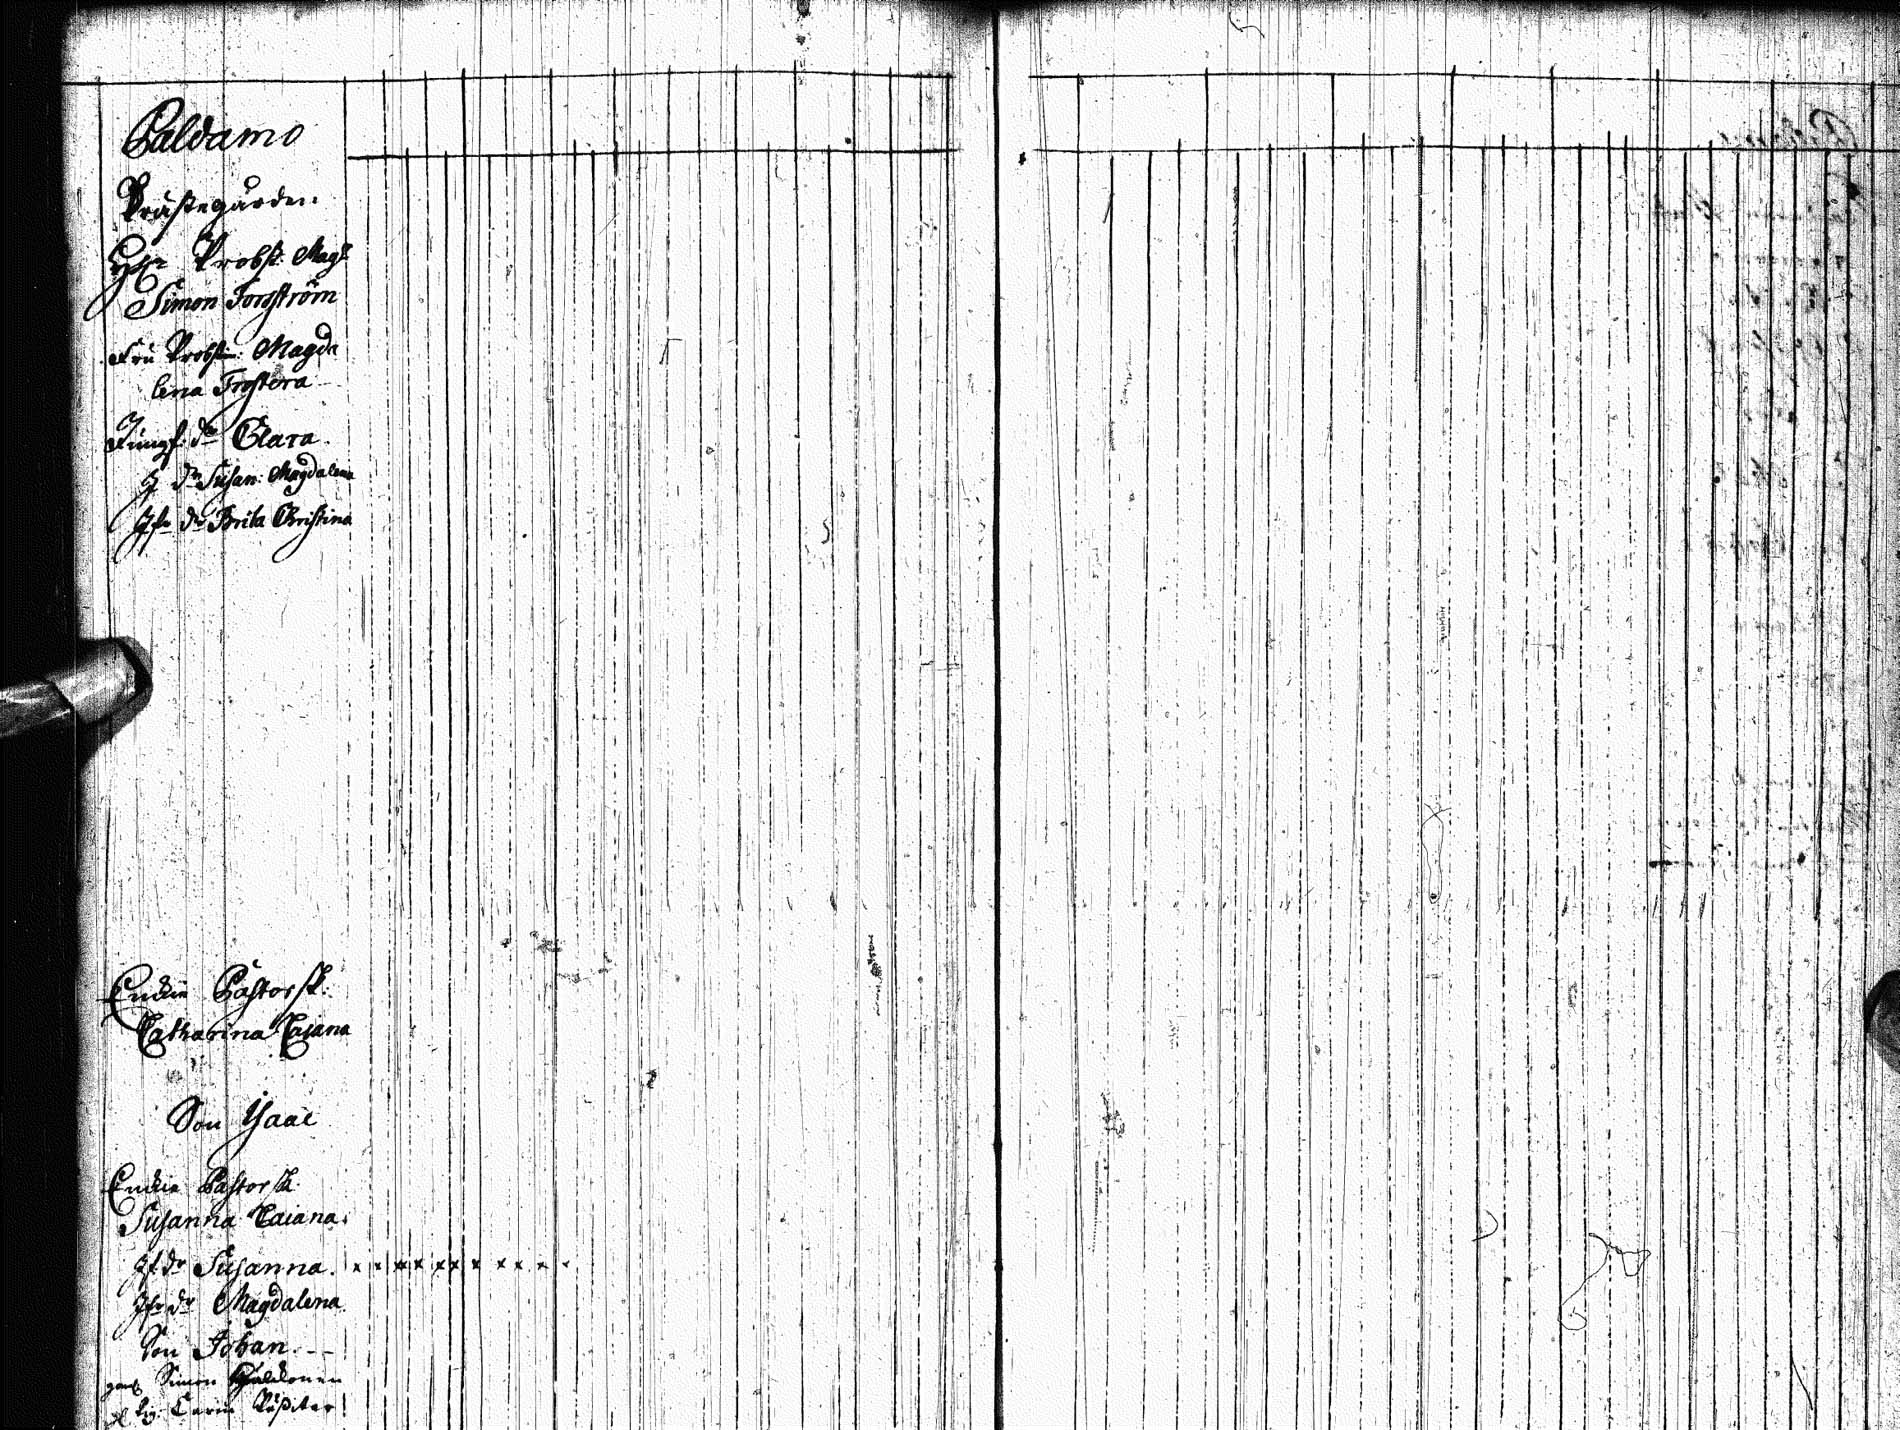 Paldamo
Prästegården.
H:r Probst. Mag:
Simon Forsström
Fru Probstin: Magda
lena Frostera
Jungf: d:r Clara.
J d:r Susan: Magdalena
Jfr d:r Brita Christina
Enckie Pastorsk:
Catharina Caiana
Son Isaac
Enckie Pastorsk.
Susanna Caiana.
Jf d:r Susanna. x x x x x x x x x x x
Jfr d:r Magdalena
Son Johan. - -
Simon
Carin